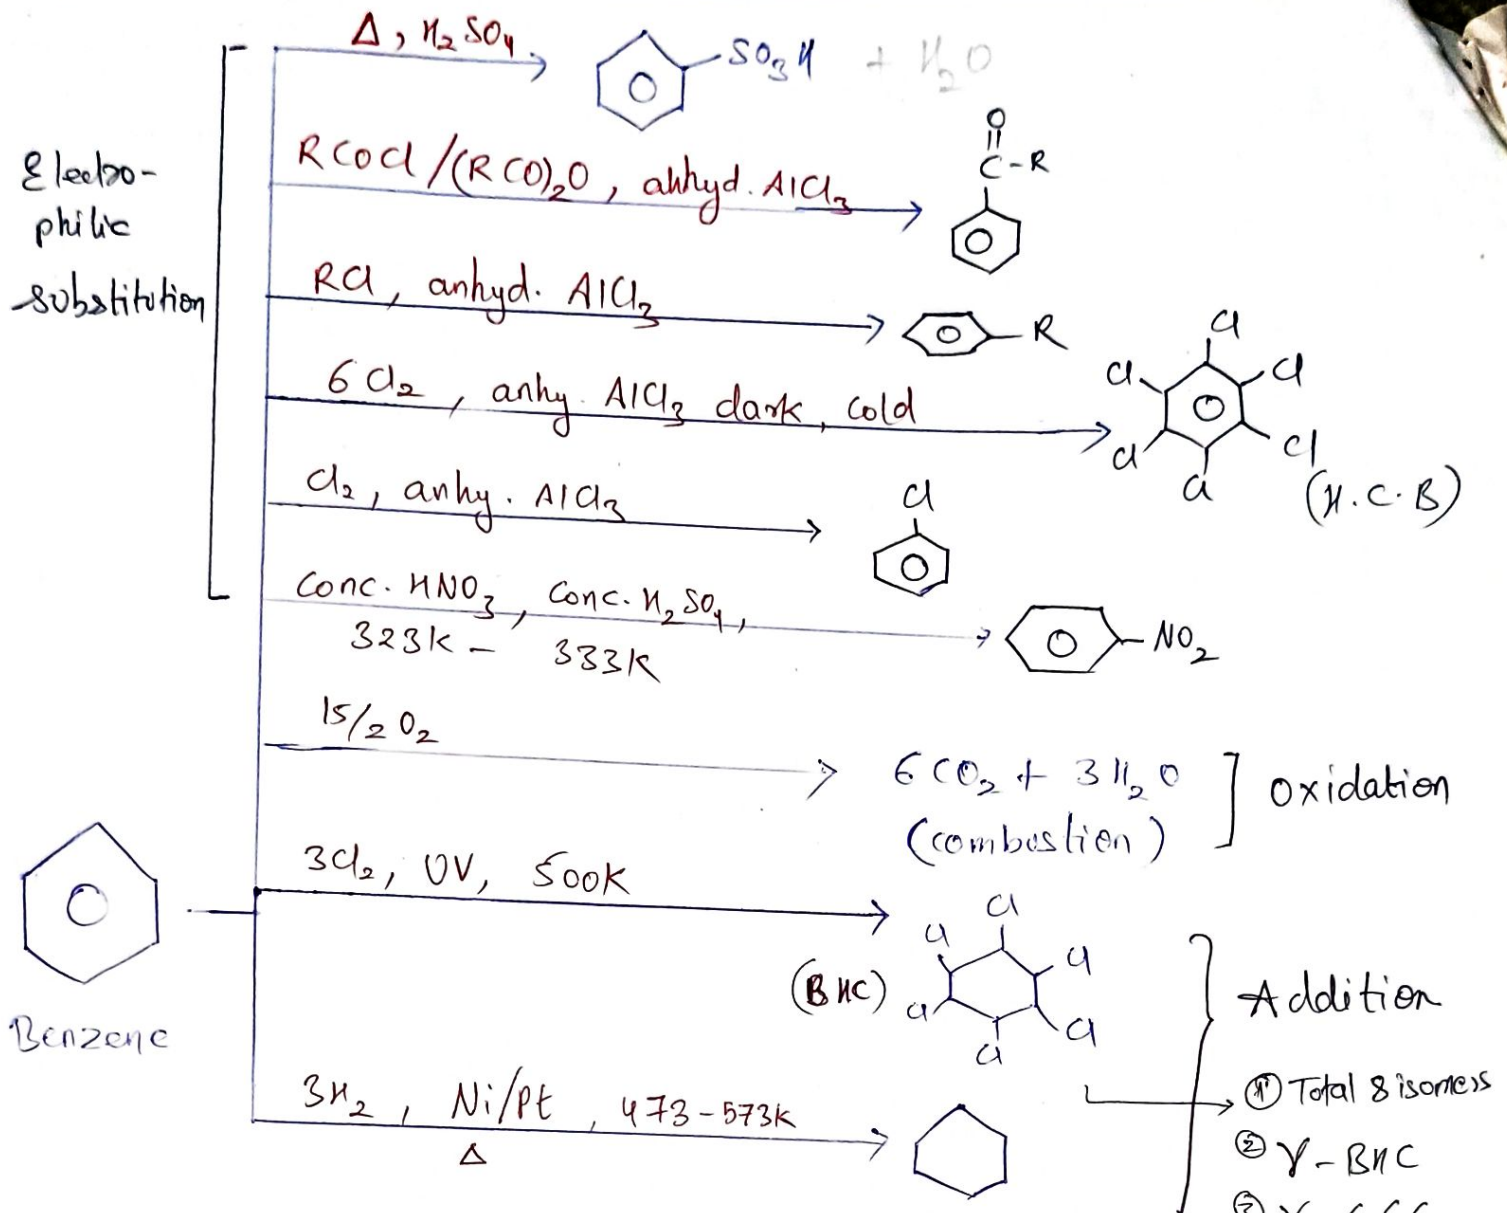 Δ, H₂SO₄
SO₃H + H₂O
Electro-
philic
substitution
RCOCl/(RCO)₂O, ahhyd. AlCl₃
O
C-R
RCl, anhyd. AlCl₃
R
6Cl₂, anhy. AlCl₃ dark, cold
Cl
Cl
Cl
Cl
Cl
Cl
(H.C.B)
Cl₂, anhy. AlCl₃
Cl
Conc. HNO₃, Conc. H₂SO₄,
323K - 333K
NO₂
15/2 O₂
6CO₂ + 3H₂O
(combustion)
Oxidation
3Cl₂, UV, 500K
Cl
Cl
Cl
Cl
Cl
Cl
(BHC)
Benzene
Addition
3H₂, Ni/Pt, 473-573K
Δ
① Total 8 isomers
② γ-BHC